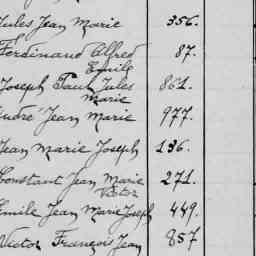 Jules Jean Marie 356.
Ferdinand Alfred 87.
Emile
Joseph Paul Jules 861.
Marie
André Jean Marie 977.
Jean Marie Joseph 136.
Constant Jean Marie 271.
Victor
Emile Jean Marie Joseph 449.
Victor François Jean 857